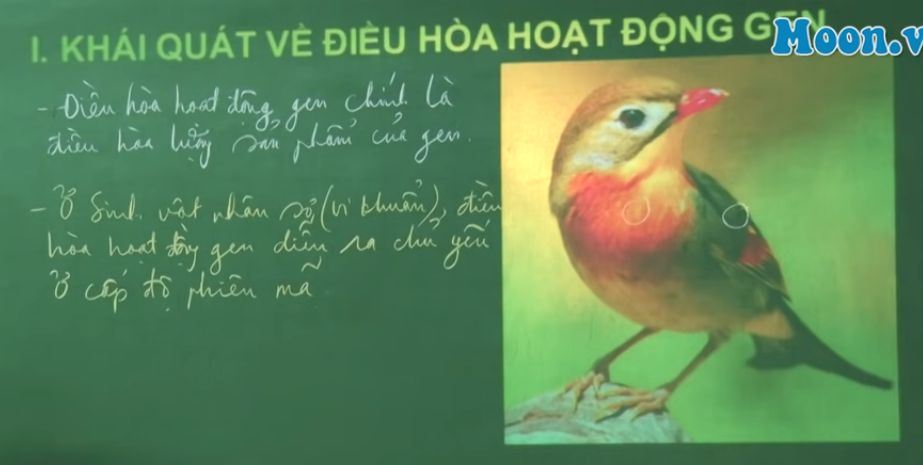 I. KHÁI QUÁT VỀ ĐIỀU HÒA HOẠT ĐỘNG GEN
Moon.v
- Điều hòa hoạt động gen chính là
điều hòa lượng sản phẩm của gen.
- Ở Sinh vật nhân sơ (vi khuẩn), điều
hòa hoạt động gen diễn ra chủ yếu
ở cấp độ phiên mã